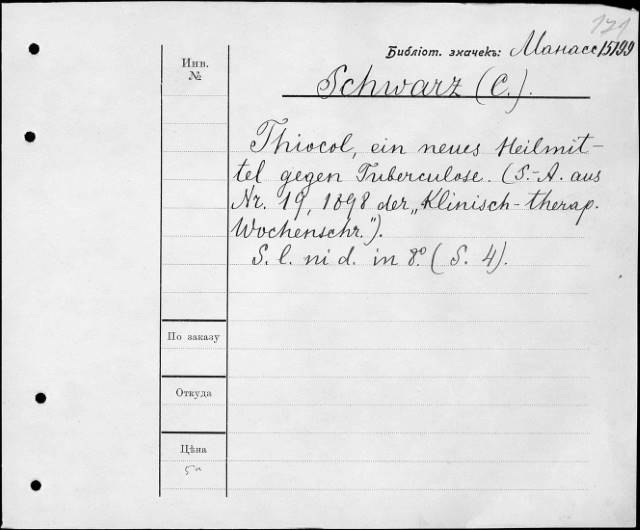 121
Библіот. значекъ: Манасс 15199
Инв.
№
Schwarz (C.).
Thiocol, ein neues Heilmit-
tel gegen Tuberculose. (S.-A. aus
Nr. 19, 1898 der „Klinisch-therap.
Wochenschr.").
S. l. ni d. in 8º. (S. 4).
По заказу
Откуда
Цѣна